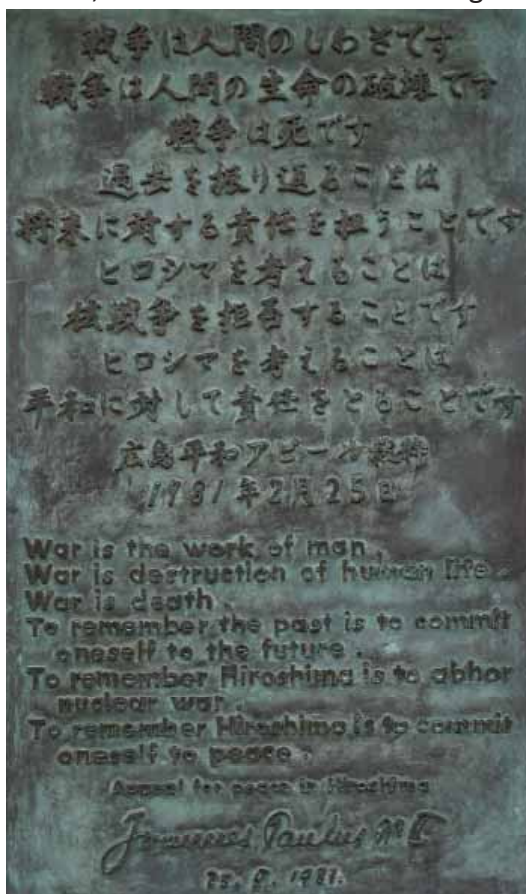 戦争は人間のしわざです
戦争は人間の生命の破壊です
戦争は死です
過去を振り返ることは
将来に対する責任を担うことです
ヒロシマを考えることは
核戦争を拒否することです
ヒロシマを考えることは
平和に対して責任をとることです
広島平和アピール抜粋
1981年2月25日
War is the work of man.
War is destruction of human life.
War is death.
To remember the past is to commit
oneself to the future.
To remember Hiroshima is to abhor
nuclear war.
To remember Hiroshima is to commit
oneself to peace.
Appeal for peace in Hiroshima
Joannes Paulus PP II
25. 2. 1981.